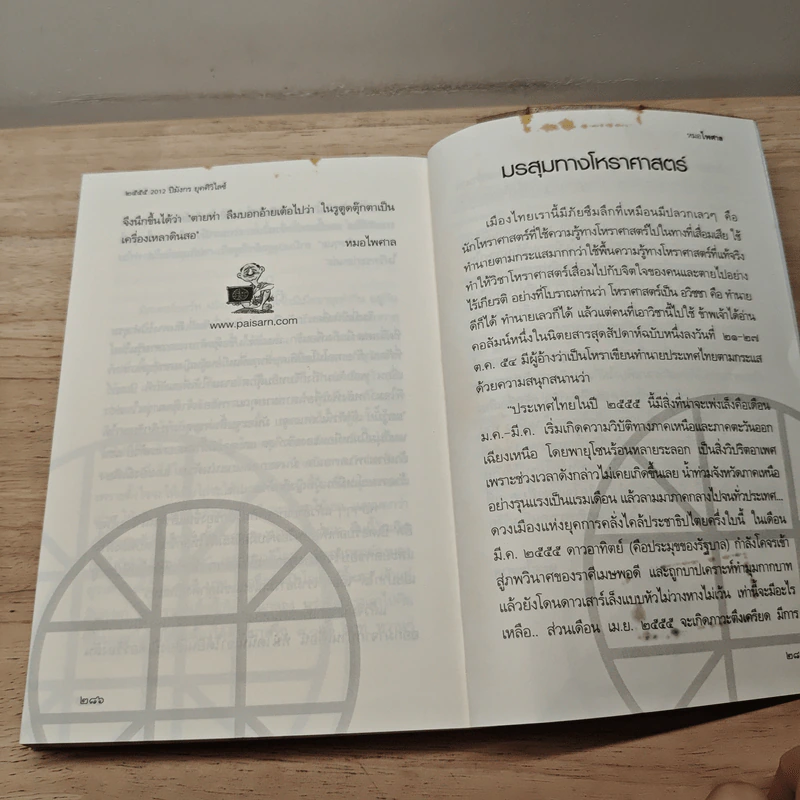 ๒๕๕๕ 2012 ปีมังกร ยุคศิวิไลซ์
จึงนึกขึ้นได้ว่า "ตายห่า ลืมบอกอ้ายเต้อไปว่า ในรูตูดตุ๊กตาเป็น
เครื่องเหลาดินสอ"
หมอไพศาล
www.paisarn.com
๒๘๖
หมอไพศาล
มรสุมทางโหราศาสตร์
เมืองไทยเรานี้มีภัยซึมลึกที่เหมือนมีปลวกเลวๆ คือ
นักโหราศาสตร์ที่ใช้ความรู้ทางโหราศาสตร์ไปในทางที่เสื่อมเสีย ใช้
ทำนายตามกระแสมากกว่าใช้พื้นความรู้ทางโหราศาสตร์ที่แท้จริง
ทำให้วิชาโหราศาสตร์เสื่อมไปกับจิตใจของคนและตายไปอย่าง
ไร้เกียรติ อย่างที่โบราณท่านว่า โหราศาสตร์เป็น อวิชชา คือ ทำนาย
ดีก็ได้ ทำนายเลวก็ได้ แล้วแต่คนที่เอาวิชานี้ไปใช้ ข้าพเจ้าได้อ่าน
คอลัมน์หนึ่งในนิตยสารสุดสัปดาห์ฉบับหนึ่งลงวันที่ ๒๑-๒๗
ต.ค. ๕๔ มีผู้อ้างว่าเป็นโหราเขียนทำนายประเทศไทยตามกระแส
ด้วยความสนุกสนานว่า
"ประเทศไทยในปี ๒๕๕๕ นี้มีสิ่งที่น่าจะเพ่งเล็งคือเดือน
ม.ค.-มี.ค. เริ่มเกิดความวิบัติทางภาคเหนือและภาคตะวันออก
เฉียงเหนือ โดยพายุโซนร้อนหลายระลอก เป็นสิ่งวิปริตอาเพศ
เพราะช่วงเวลาดังกล่าวไม่เคยเกิดขึ้นเลย น้ำท่วมจังหวัดภาคเหนือ
อย่างรุนแรงเป็นแรมเดือน แล้วลามมาภาคกลางไปจนทั่วประเทศ...
ดวงเมืองแห่งยุคการคลั่งไคล้ประชาธิปไตยครึ่งใบนี้ ในเดือน
มี.ค. ๒๕๕๕ ดาวอาทิตย์ (คือประมุขของรัฐบาล) กำลังโคจรเข้า
สู่ภพวินาศของราศีเมษพอดี และถูกบาปเคราะห์ทำมุมกากบาท
แล้วยังโดนดาวเสาร์เล็งแบบหัวไม่วางหางไม่เว้น เท่านี้จะมีอะไร
เหลือ.. ส่วนเดือน เม.ย. ๒๕๕๕ จะเกิดภาวะตึงเครียด มีการ